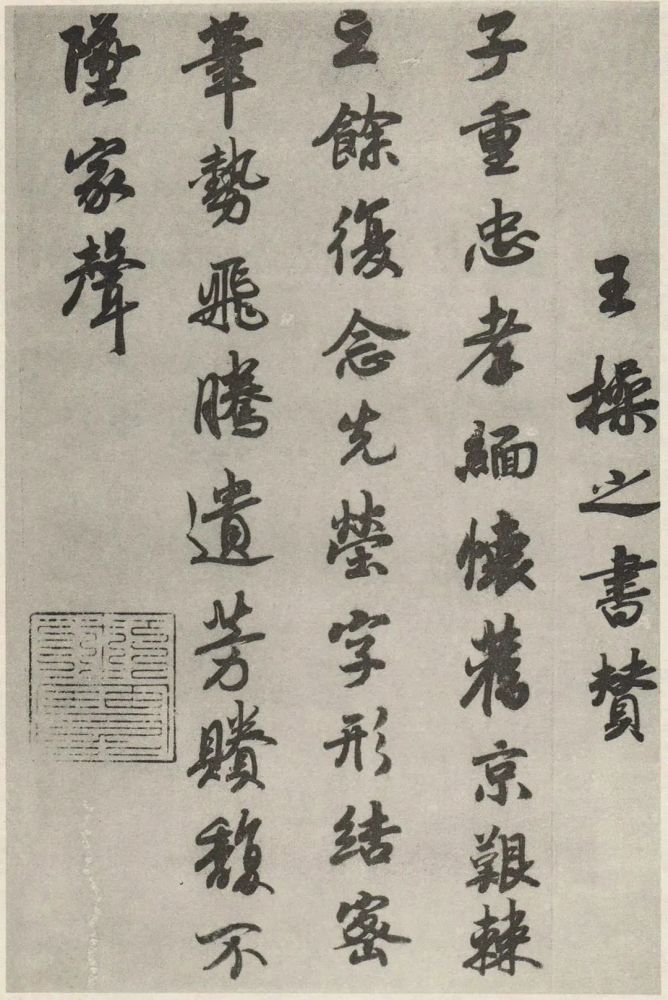 王操之書賛
子重忠孝緬懷舊京艱棘
之餘復念先塋字形結密
筆勢飛騰遺芳賸馥不
墜家聲